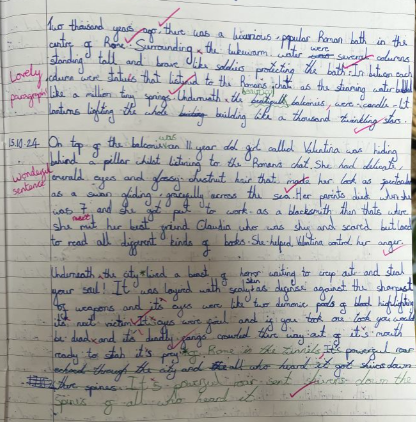 Two thousand years ago, there was a luxurious, popular Roman bath in the
centre of Rome. Surrounding the lukewarm water were several columns
standing tall and brave like soldiers protecting the bath. In between each
column were statues that listened to the Romans chat as the stunning water
like a million tiny springs. Underneath the balconies, were candle-lit
lanterns lighting the whole building like a thousand twinkling stars.
Lovely
paragraph
15.10.24
On top of the balcony was an 11 year old girl called Valentina was hiding
behind a pillar whilst listening to the Romans chat. She had delicate,
emerald eyes and glossy chestnut hair that made her look as
wonderful
sentence
as a swan gliding gracefully across the sea. Her parents died when she
was 7 and she got put to work as a blacksmith then thats where
she met her best friend Claudia who was shy and scared but loved
to read all different kinds of books. She helped Valentina control her anger.
Underneath the city lived a beast of horror waiting to creep out and steal
your soul! It was layered with skin as against the sharpest
of weapons and it's eyes were like two demonic pools of blood highlighting
its next victim. It's eyes were and if you took one look you would
be dead and it's deadly fangs way out of it's mouth
ready to stab it's prey. Rome in the It's powerful roar
echoed through the city and all who heard it got shivers down
there spines. It's powerful roar sent shivers down the
spines of all who heard it.